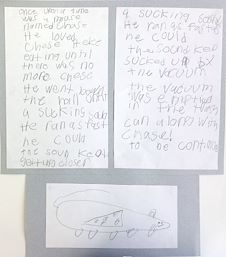 once upon a time
was a mouse
named Chase
He loved
chese He kept
eating until
there was no
more chese
He went
the rain until
a sucking
He ran as fast
he could
the soun keat
getting closer
a sucking
He ran as fast
he could
the sound keep
sucked up by
the vacuum
the vacuum
was emptied
in the
can along with
Chase!
to be continue